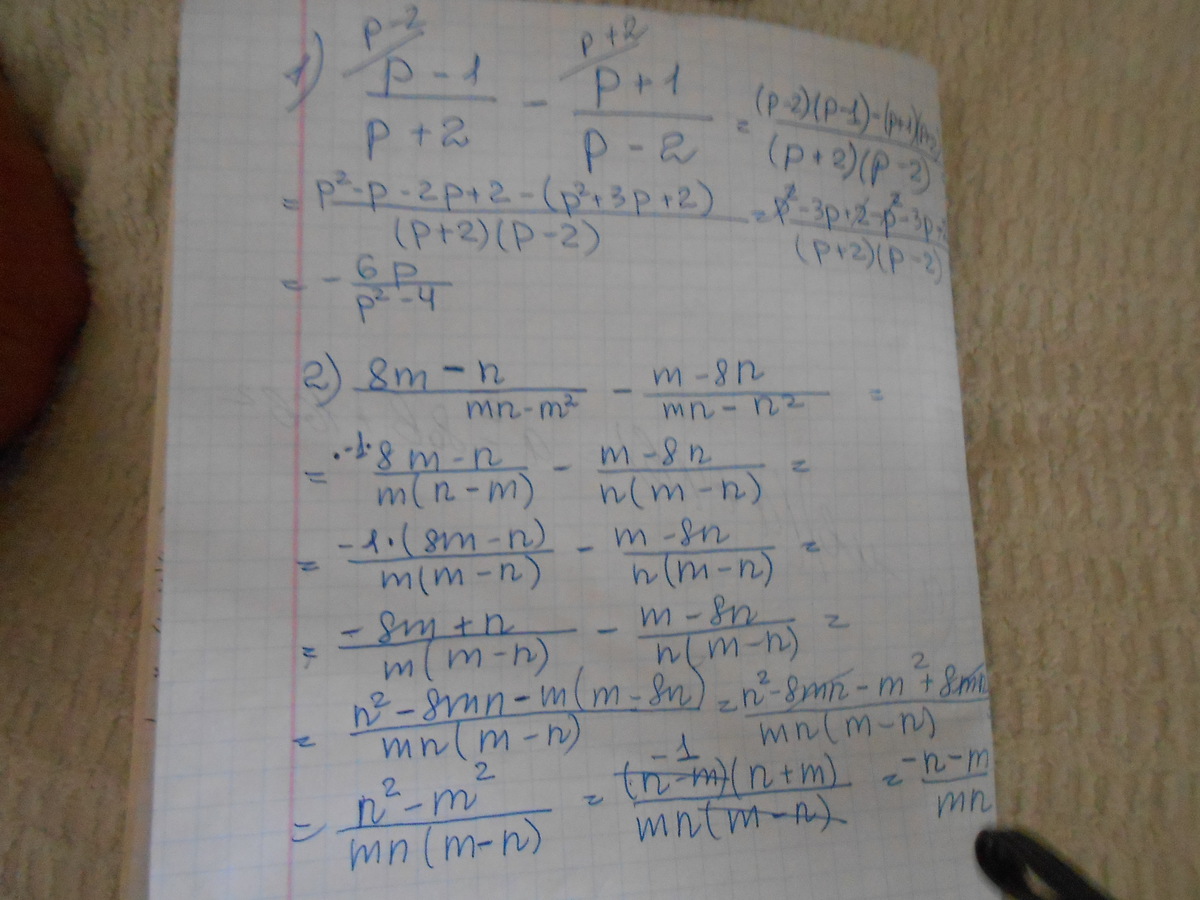 1) p-2/ (p - 1)/(p + 2) - p+2/ (p + 1)/(p - 2) = ((p-2)(p-1)-(p+1)(p+2))/((p+2)(p-2))
= (p²-p-2p+2-(p²+3p+2))/((p+2)(p-2)) = (p²-3p+2-p²-3p-2)/((p+2)(p-2))
= - 6p/(p²-4)
2) (8m - n)/(mn-m²) - (m-8n)/(mn-n²) =
= ·-1· (8m-n)/(m(n-m)) - (m-8n)/(n(m-n)) =
= (-1·(8m-n))/(m(m-n)) - (m-8n)/(n(m-n)) =
= (-8m+n)/(m(m-n)) - (m-8n)/(n(m-n)) =
= (n²-8mn-m(m-8n))/(mn(m-n)) = (n²-8mn-m²+8mn)/(mn(m-n))
= (n²-m²)/(mn(m-n)) = -1 ((n-m)(n+m))/(mn(m-n)) = (-n-m)/(mn)